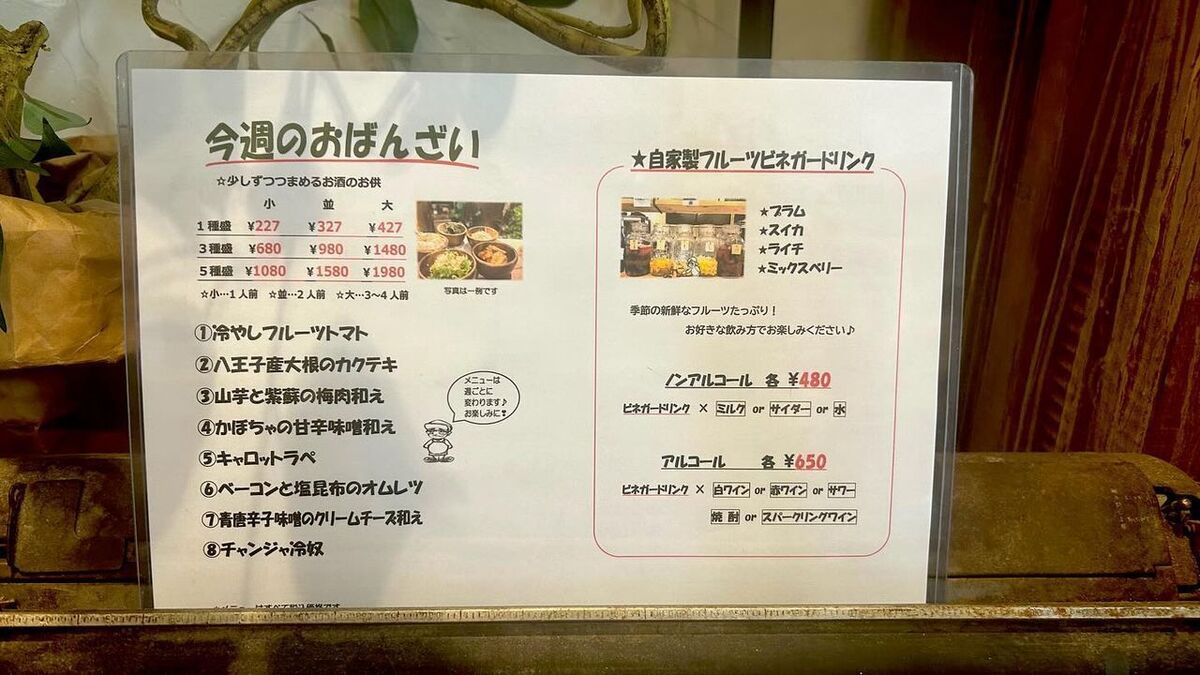 今週のおばんざい
☆少しずつつまめるお酒のお供
小 並 大
1種盛 ¥227 ¥327 ¥427
3種盛 ¥680 ¥980 ¥1480
5種盛 ¥1080 ¥1580 ¥1980
☆小…1人前 ☆並…2人前 ☆大…3〜4人前
写真は一例です
①冷やしフルーツトマト
②八王子産大根のカクテキ
③山芋と紫蘇の梅肉和え
④かぼちゃの甘辛味噌和え
⑤キャロットラペ
⑥ベーコンと塩昆布のオムレツ
⑦青唐辛子味噌のクリームチーズ和え
⑧チャンジャ冷奴
メニューは
週ごとに
変わります♪
お楽しみに❣
☆メニューはすべて税込価格です
★自家製フルーツビネガードリンク
★プラム
★スイカ
★ライチ
★ミックスベリー
季節の新鮮なフルーツたっぷり！
お好きな飲み方でお楽しみください♪
ノンアルコール 各 ¥480
ビネガードリンク × ミルク or サイダー or 水
アルコール 各 ¥650
ビネガードリンク × 白ワイン or 赤ワイン or サワー
焼酎 or スパークリングワイン